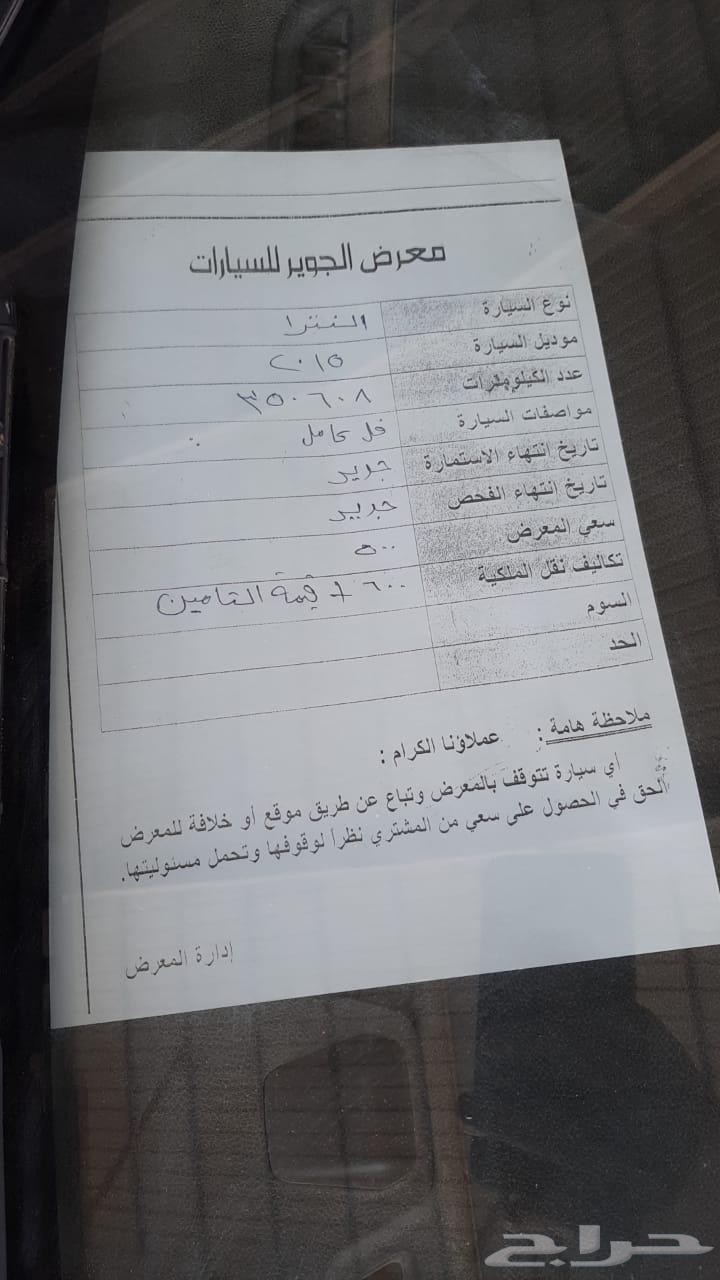 معرض الجوير للسيارات
نوع السيارة النترا
موديل السيارة ٢٠١٥
عدد الكيلومترات ٣٥٠٦٠٨
مواصفات السيارة فل كامل
تاريخ انتهاء الاستمارة جديد
تاريخ انتهاء الفحص جديد
سعي المعرض ٥٠٠
تكاليف نقل الملكية ٦٠٠ + قيمة التامين
السوم
الحد
ملاحظة هامة : عملاؤنا الكرام :
أي سيارة تتوقف بالمعرض وتباع عن طريق موقع أو خلافة للمعرض
الحق في الحصول على سعي من المشتري نظراً لوقوفها وتحمل مسئوليتها.
إدارة المعرض
حراج